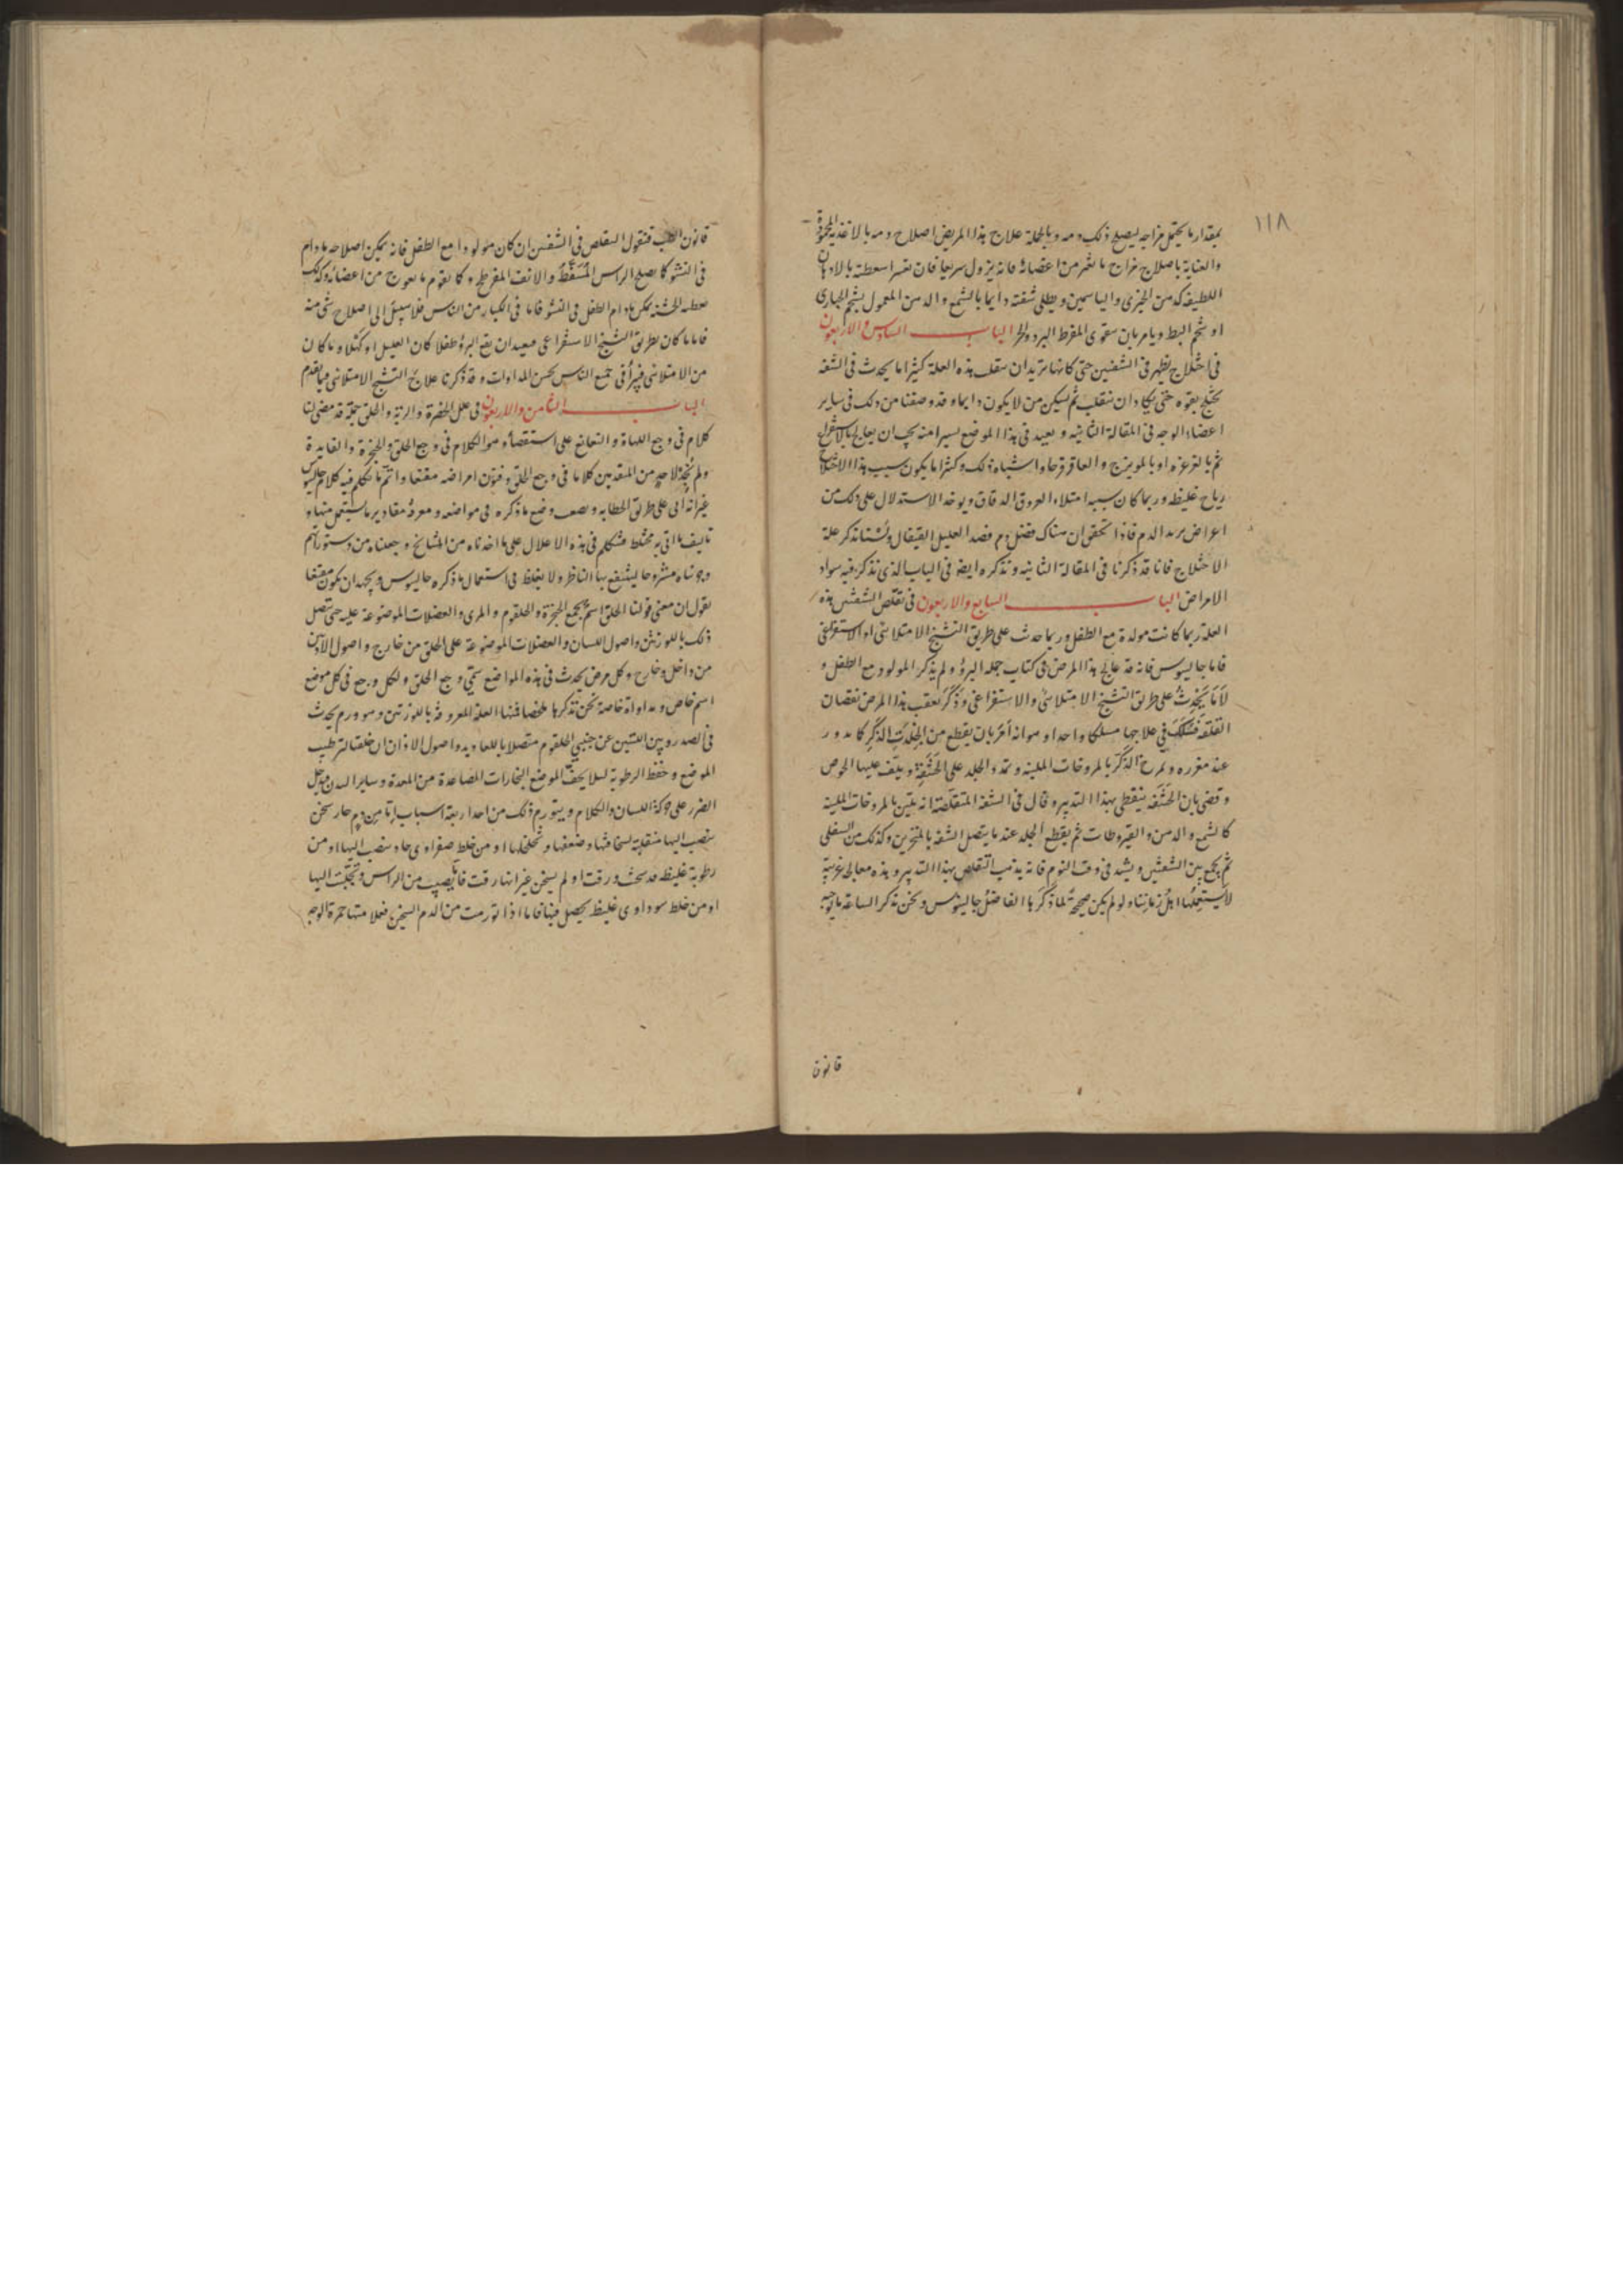 ١١٨
بمقدار ما يحتمل مزاجه ليصلح ذلك دمه وبالجملة علاج هذا المريض اصلاح دمه بالاغذية المحمودة
والعناية باصلاح مزاج ما تغير من اعضائه فانه يزول سريعا فان تعسر اسعطته بالادهان
اللطيفة كدهن الخيرى والياسمين ويطلى شفته دايما بالشمع والدهن المعمول بشحم
او شحم البط ويامر بان يتوقى المفرط البرد والحر الباب السادس والاربعون
فى اختلاج يظهر فى الشفتين حتى كانها تريد ان تنقلب هذه العلة كثيرا ما يحدث فى الشفة
يختلج بقوة حتى يكاد ان تنقلب ثم يسكن من لا يكون دايما وقد وصفنا من ذلك فى ساير
اعضاء الوجه فى المقالة الثانية ونعيد فى هذا الموضع يسيرا منه يجب ان يعالج بالاستفراغ
ثم بالغرغرة او بالمويزج والعاقرقرحا واشباه ذلك وكثيرا ما يكون سبب هذا الاختلاج
رياح غليظة وربما كان سببه امتلاء العروق الدقاق ويوخذ الاستدلال على ذلك من
اعراض الدم فاذا تحقق ان هناك فضل دم فصد العليل القيفال ولسنا نذكر علة
الاختلاج فانا قد ذكرنا فى المقالة الثانية ونذكره ايضا فى الباب الذى نذكر فيه سواد
الامراض الباب السابع والاربعون فى تقلص الشفتين هذه
العلة ربما كانت مولدة مع الطفل وربما حدث على طريق التشنج الامتلائى او الاستفراغى
فاما جالينوس فانه قد عالج هذا المرض فى كتاب حيلة البرؤ ولم يذكر المولود مع الطفل و
لا ما يحدث على طريق التشنج الامتلائى والاستفراغى وذكر بعقب هذا المرض نقصان
القلفة فسلك فى علاجها مسلكا واحدا وهو انه امر بان يقطع من الجلد الذكر كما يدور
عند مغرزه ويمرخ الذكر بالمروخات الملينة وتمدد الجلد على الحشفة ويلف عليها الخوص
وقضى بان الحشفة يتغطى بهذا التدبير وقال فى الشفة المتقلصة انه يلين بالمروخات الملينة
كالشمع والدهن والقيروطات ثم يقطع الجلد عند ما يتصل الشفة بالمنخرين وكذلك من السفلى
ثم يجمع بين الشفتين ويشد فى وقت النوم فانه يذهب التقلص بهذا التدبير وهذه معالجة غريبة
لا يستعملها اهل زماننا ولو لم يكن صحيحة لما ذكرها الفاضل جالينوس ونحن نذكر الساعة ما يوجبه
قانون
قانون الطب فنقول التقلص فى الشفتين ان كان مولودا مع الطفل فانه يمكن اصلاحه ما دام
فى النشو كما يصلح الراس المسفط والانف المفرطح وكما يقوم ما يعوج من اعضائه وكذلك
يمكن ما دام الطفل فى النشو فاما فى الكبار من الناس فلا سبيل الى اصلاح شئ منه
فاما ما كان بطريق التشنج الاستفراغى فبعيد ان يقع البرؤ طفلا كان العليل او كهلا وما كان
من الامتلائى فيبرأ فى جميع الناس بحسن المداوات وقد ذكرنا علاج التشنج الامتلائى فيما تقدم
الباب الثامن والاربعون فى علل الحنجرة والرية والحلق جملة قد مضى لنا
كلام فى وجع اللهاة والنغانغ على استقصاء وهو الكلام فى وجع الحلق والحنجرة والفايدة
ولم نجد لاحد من المتقدمين كلاما فى وجع الحلق وفنون امراضه مقنعا واتم ما تكلم فيه كلام جالينوس
غير انه اتى على طريق الخطابة وضع ما ذكره فى مواضعه ومعرفة مقادير ما يستعمل منها و
تاليف ما اتى به مختلط فنتكلم فى هذه الاعلال على ما اخذناه من المشايخ وجمعناه من دستوراتهم
وجوناه مشروحا لينتفع بها الناظر ولا يغلط فى استعمال ما ذكره جالينوس ويجب ان يكون مقنعا
نقول ان معنى قولنا الحلق اسم يجمع الحنجرة والحلقوم والمرى والعضلات الموضوعة عليه حتى يتصل
ذلك باللوزتين واصول اللسان والعضلات الموضوعة على الحلق من خارج واصول الاذنين
من داخل وخارج وكل مرض يحدث فى هذه المواضع سمى وجع الحلق ولكل وجع فى كل موضع
اسم خاص ومداواة خاصة نحن نذكرها ملخصا فمنها العلة المعروفة باللوزتين وهو ورم يحدث
فى الصدر وبين اللتين عن جنبى الحلقوم متصلا باللغاديد واصول الاذان خلقتا لترطيب
الموضع وحفظ الرطوبة لئلا يجف الموضع البخارات المتصاعدة من المعدة وساير البدن فيدخل
الضرر على حركة اللسان والكلام ويتورم ذلك من احد اربعة اسباب اما من دم حار سخن
ينصب اليها فتقلبه لسخافتها وضعفها وتخلخلها او من خلط صفراوى حاد ينصب اليها او من
رطوبة غليظة قد سخنت ورقت او لم يسخن غير انها رقت فانصب من الراس وتجلبت اليها
او من خلط سوداوى غليظ يحصل فيها فاما اذا تورمت من الدم السخن فعلامتها حمرة الوجه